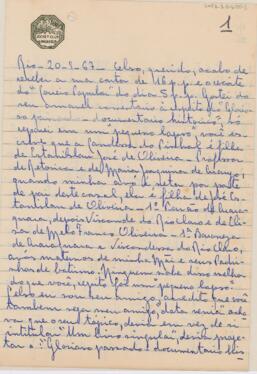 1
Rio - 20-3-67 - Celso, querido, acabo de
receber a sua carta de 16 p.p. e o recorte
do "Correio Popular" do dia 5 p.p. Gostei do
seu amavel comentario à respeito de "Glorio
so passado - documentario historico", só
reparei em um pequeno lapso, você es-
creve que a famila do Pinhal é filha
de Estanislau José de Oliveira - Professor
de Retorica e de Maria Joaquina de
quando minha avó é neta por parte
de pai deste casal, ela é filha de José Es-
tanislau de Oliveira - 1º Barão de Arara-
quara, depois Visconde do Rio Claro e de Eli-
sa de Mello Franco Oliveira - 1ª Baroneza
de Araraquara e Viscondessa do Rio Claro,
avós maternos de minha Mãe e seus Padri-
nhos de batismo. Ninguem sabe disso melhor
do que você, repito foi um pequeno lapso.
Celso eu sou seu amigo, acredito que você
tambem seja meu amigo, data venia
que o seu topico, devia em vez de
intitular "Um livro singular", devia
tar o "Glorioso passado - documentario his